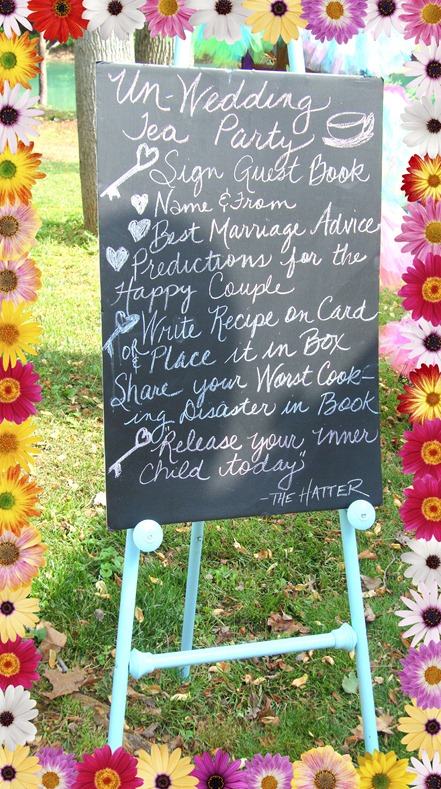 Un-Wedding
Tea Party
Sign Guest Book
Name & From
Best Marriage Advice
Predictions for the
Happy Couple
Write Recipe on Card
or & Place it in Box
Share your Worst Cook-
ing Disaster in Book
"Release your inner
child today"
-THE HATTER